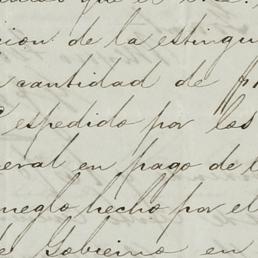 que el
cion de la estingui
cantidad de p
espedido por los
eral en pago de l
reglo hecho por el
de Gobierno en